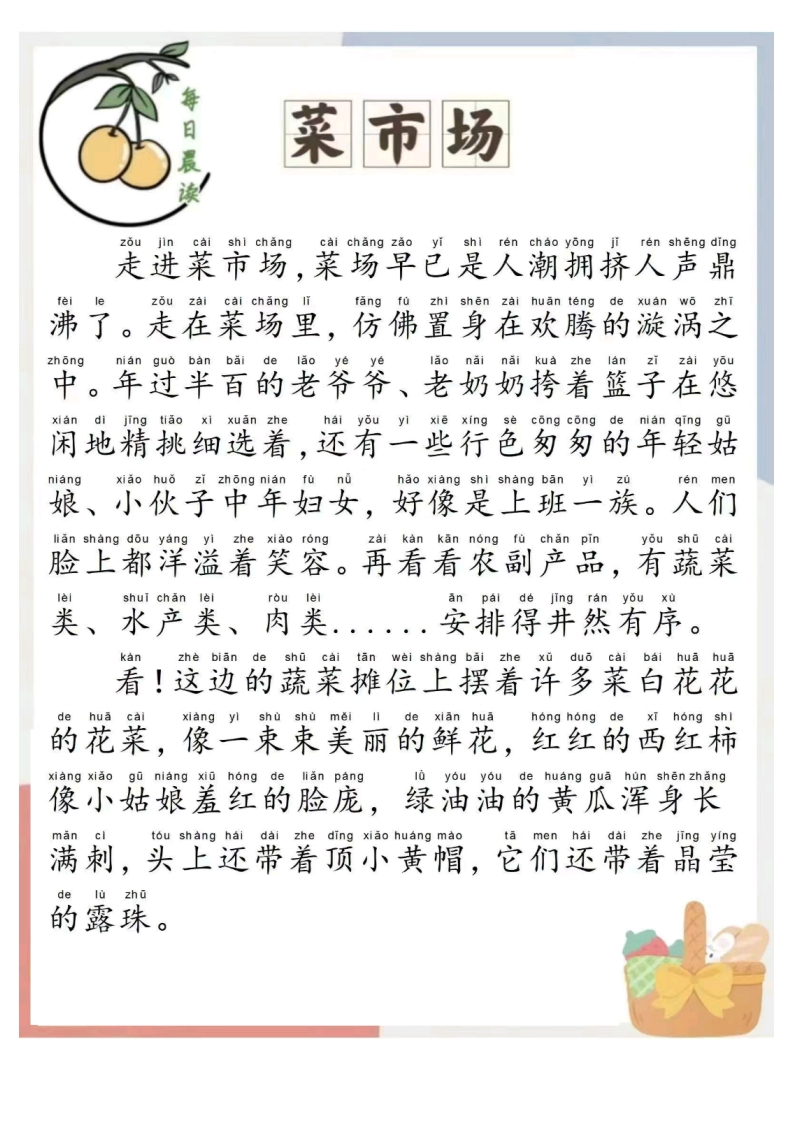 每日晨读
菜市场
zǒu jìn cài shì chǎng cài chǎng zǎo yǐ shì rén cháo yōng jǐ rén shēng dǐng
走进菜市场，菜场早已是人潮拥挤人声鼎
fèi le zǒu zài cài chǎng lǐ fǎng fú zhì shēn zài huān téng de xuán wō zhī
沸了。走在菜场里，仿佛置身在欢腾的漩涡之
zhōng nián guò bàn bǎi de lǎo yé yé lǎo nǎi nǎi kuà zhe lán zǐ zài yōu
中。年过半百的老爷爷、老奶奶挎着篮子在悠
xián dì jīng tiāo xì xuǎn zhe hái yǒu yì xiē xíng sè cōng cōng de nián qīng gū
闲地精挑细选着，还有一些行色匆匆的年轻姑
niáng xiǎo huǒ zǐ zhōng nián fù nǚ hǎo xiàng shì shàng bān yì zú rén men
娘、小伙子中年妇女，好像是上班一族。人们
liǎn shàng dōu yáng yì zhe xiào róng zài kàn kān nóng fù chǎn pǐn yǒu shū cài
脸上都洋溢着笑容。再看看农副产品，有蔬菜
lèi shuǐ chǎn lèi ròu lèi ān pái dé jǐng rán yǒu xù
类、水产类、肉类......安排得井然有序。
kàn zhè biān de shū cài tān wèi shàng bǎi zhe xǔ duō cài bái huā huā
看！这边的蔬菜摊位上摆着许多菜白花花
de huā cài xiàng yì shù shù měi lì de xiān huā hóng hóng de xī hóng shì
的花菜，像一束束美丽的鲜花，红红的西红柿
xiàng xiǎo gū niáng xiū hóng de liǎn páng lǜ yóu yóu de huáng guā hún shēn zhǎng
像小姑娘羞红的脸庞，绿油油的黄瓜浑身长
mǎn cì tóu shàng hái dài zhe dǐng xiǎo huáng mào tā men hái dài zhe jīng yíng
满刺，头上还带着顶小黄帽，它们还带着晶莹
de lù zhū
的露珠。